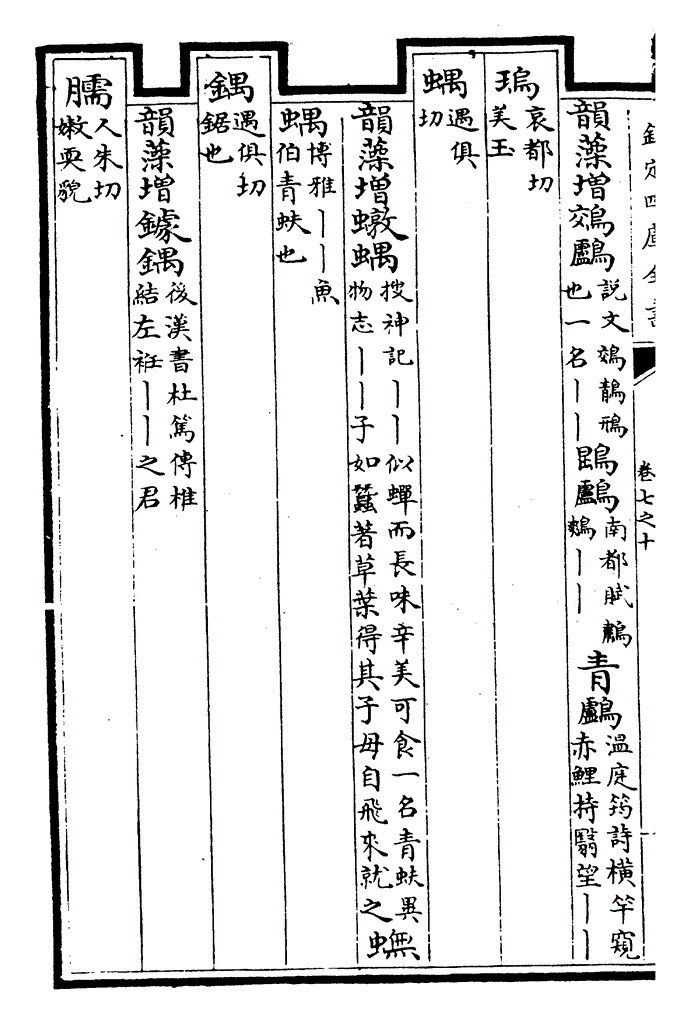 欽定四庫全書
卷七之十
韻藻增鵁鸕
說文鵁鶄鳽
也一名丨丨
鵾鸕
南都賦鷫
鷞丨丨
青鸕
溫庭筠詩橫竿窺
赤鯉持翳望丨丨
瑦
哀都切
美玉
𧍪
遇俱
切
韻藻增𧑒𧍪
搜神記丨丨似蟬而長味辛美可食一名青蚨異
物志丨丨子如蠶著草葉得其子母自飛來就之
蟱
𧍪
博雅丨丨魚
伯青蚨也
鍝
遇俱切
鋸也
韻藻增鐻鍝
後漢書杜篤傳椎
結左衽丨丨之君
臑
人朱切
嫩耎貌